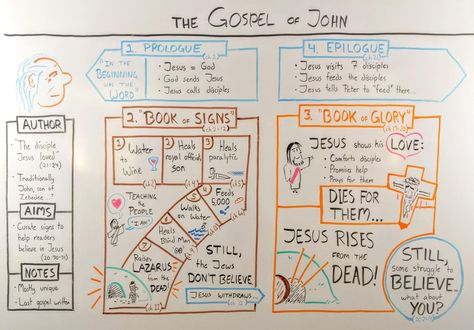 THE GOSPEL OF JOHN
"IN THE
BEGINNING
WAS THE
WORD"
1. PROLOGUE
(ch.1)
• Jesus = God
• God sends Jesus
• Jesus calls disciples
4. EPILOGUE
(ch.21)
• Jesus visits 7 disciples
• Jesus feeds the disciples
• Jesus tells Peter to "feed" them...
AUTHOR
• The disciple
Jesus loved"
(21:24)
• Traditionally
John, son of
Zebedee?
AIMS
• Curate signs to
help readers
believe in Jesus
(20:30-31)
NOTES
• Mostly unique
• Last gospel written
2. "BOOK OF SIGNS"
(ch.2-12)
1 Water
to
Wine
(ch.2)
2 Heals
royal official's
son
(ch.4)
3 Heals
paralytic
(ch.5)
4 Feeds
5,000
(ch.6)
5 Walks
on Water
(ch.6)
6 Heals
Blind Man
(ch.9)
7 Raises
LAZARUS
from the
DEAD!
(ch.11)
TEACHING
PEOPLE
"I AM"
STILL,
the Jews
DON'T BELIEVE.
JESUS WITHDRAWS...
3. "BOOK OF GLORY"
(ch.13-20)
JESUS shows his LOVE:
• Comforts disciples
• Promises help
• Prays for them
DIES FOR
THEM...
JESUS RISES
FROM THE
DEAD!
STILL,
some struggle to
BELIEVE.
what about
YOU?